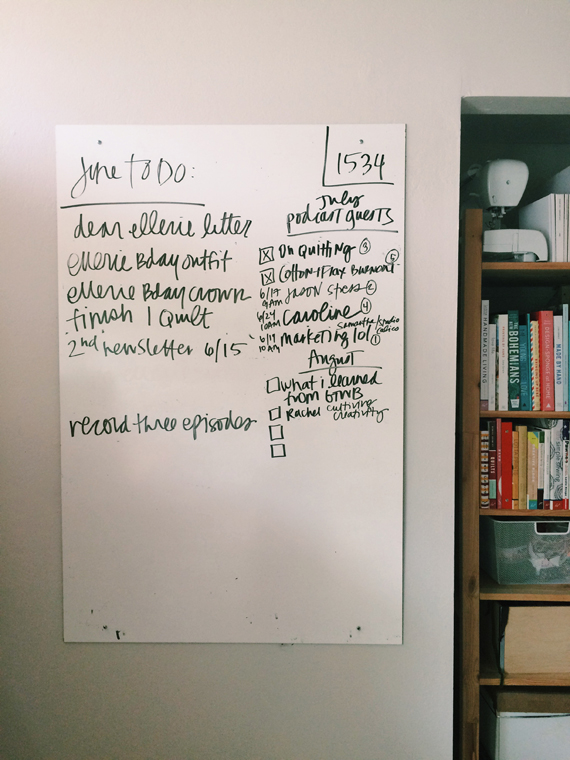 June TO DO:
dear ellerie letter
ellerie Bday outfit
ellerie Bday crown
finish 1 Quilt
2nd newsletter 6/15
record three episodes
1534
July
podcast guests
On Quitting ③
Cotton + Flax ⑤
6/17
9AM JASON ②
6/24
10AM Caroline ④
Samantha studio calico
6/19
10AM Marketing 101 ①
August
What i learned
from GTWB
Rachel
creativity
HANDMADE LIVING
THE NEW BOHEMIANS
DESIGN SPONGE AT HOME
MADE BY HAND